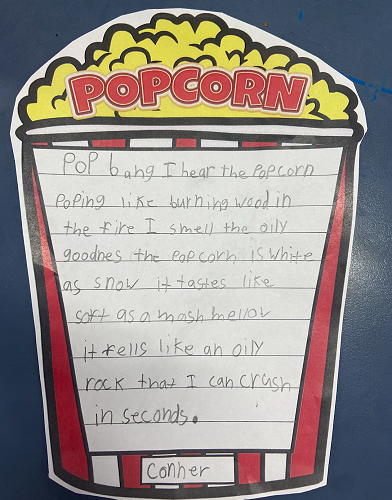 POPCORN
POP bang I hear the popcorn
poping like burning wood in
the fire I smell the oily
goodnes the popcorn is white
as snow it tastes like
soft as a mash mellow
it fells like an oily
rock that I can crush
in seconds.
Conher